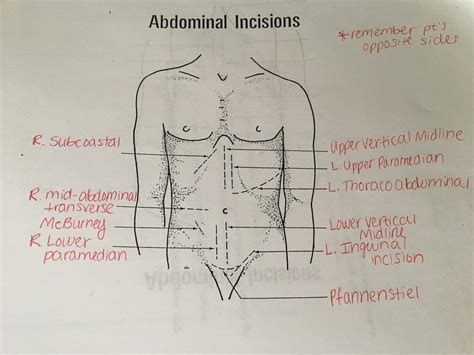 Abdominal Incisions
*remember pt's
opposite sides
R. Subcoastal
Upper Vertical Midline
L. Upper Paramedian
L. Thoraco abdominal
R. mid-abdominal
transverse
McBurney
R Lower
paramedian
Lower Vertical
Midline
L. Inguinal
incision
Pfannenstiel
Abdominal Incisions